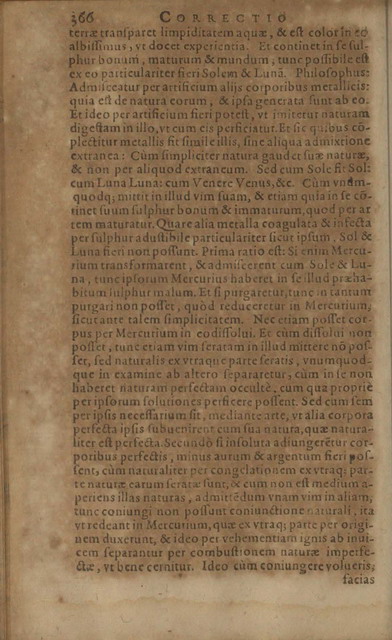 366 CORRECTIO
terræ transparet limpiditatem aquæ, & est color in eo
albissimus, vt docet experientia. Et continet in se sul-
phur bonum, maturum & mundum, tunc possibile est
ex eo particulariter fieri Solem & Lunã. Philosophus:
Admisceatur per artificium alijs corporibus metallicis:
quia est de natura eorum, & ipsa generata sunt ab eo.
Et ideo per artificium fieri potest, vt imitetur naturam
digestam in illo, vt cum eis perficiatur. Et sic quibus cõ-
plectitur metallis fit simile illis, sine aliqua admixtione
extranea: Cùm simpliciter natura gaudet suæ naturæ,
& non per aliquod extraneum. Sed cum Sole fit Sol:
cum Luna Luna: cum Venere Venus, &c. Cùm vnum-
quodq; mittit in illud vim suam, & etiam quia in se cõ-
tinet suum sulphur bonum & immaturum, quod per ar
tem maturatur. Quare alia metalla coagulata & infecta
per sulphur adustibile particulariter sicut ipsum, Sol &
Luna fieri non possunt. Prima ratio est: Si enim Mercu-
rium transformarent, & admiscerent cum Sole & Lu-
na, tunc ipsorum Mercurius haberet in se illud præha-
bitum sulphur malum. Et si purgaretur, tunc in tantum
purgari non posset, quòd reduceretur in Mercurium,
sicut ante talem simplicitatem. Nec etiam posset cor-
pus per Mercurium in eo dissolui. Et cùm dissolui non
posset, tunc etiam vim seratam in illud mittere nõ pos-
set, sed naturalis ex vtraque parte seratis, vnumquod-
que in examine ab altero separaretur, cùm in se non
haberet naturam perfectam occultè, cum qua propriè
per ipsorum solutiones perficere possent. Sed cùm sem
per ipsis necessarium sit, mediante arte, vt alia corpora
perfecta ipsis subuenirent cum sua natura, quæ natura-
liter est perfecta. Secundò si insoluta adiungerẽtur cor-
poribus perfectis, minus aurum & argentum fieri pos-
sent, cùm naturaliter per congelationem ex vtraq; par-
te naturæ earum seratæ sunt, & cum non est medium a-
periens illas naturas, admittẽdum vnam vim in aliam,
tunc coniungi non possunt coniunctione naturali, ita
vt redeant in Mercurium, quæ ex vtraq; parte per origi-
nem duxerunt, & ideo per vehementiam ignis ab inui-
cem separantur per combustionem naturæ imperfe-
ctæ, vt bene cernitur. Ideo cùm coniungere volueris,
facias